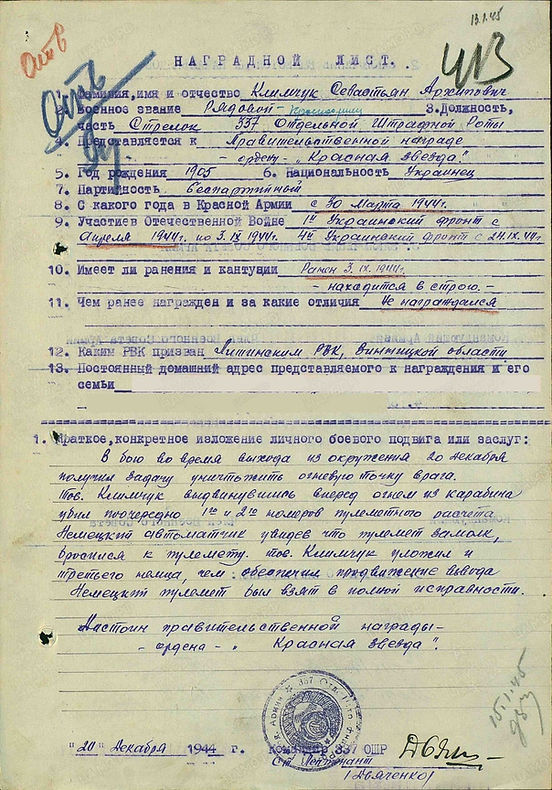 13.1.45
НАГРАДНОЙ ЛИСТ.
1. Фамилия,имя и отчество Климчук Севастьян Архипович
2. Военное звание Рядовой 3.Должность,
часть Стрелок 337 Отдельной Штрафной Роты
4. Представляется к Правительственной награде
- ордену - „Красная звезда".
5. Год рождения 1905 6. Национальность Украинец
7. Партийность беспартийный
8. С какого года в Красной Армии с 30 Марта 1944г.
9. Участие в Отечественной Войне 1й Украинский фронт с
Апреля 1944г. по 3.IX 1944г. 4й Украинский фронт с 24.IX.44г.
10. Имеет ли ранения и кантузии Ранен 3.IX.1944г.
- находится в строю. -
11. Чем ранее награжден и за какие отличия Не награждался
12. Каким РВК призван Литинским РВК, Винницкой области
13. Постоянный домашний адрес представляемого к награждения и его
семьи
1. Краткое,конкретное изложение личного боевого подвига или заслуг:
В бою во время выхода из окружения 20 декабря
получил задачу уничтожить огневую точку врага.
Тов. Климчук выдвинувшись вперед огнем из карабина
убил поочередно 1го и 2го номеров пулеметного расчета
Немецкий автоматчик увидев что пулемет замолк,
бросился к пулемету. тов. Климчук уложил и
третьего немца, чем обеспечил продвижение взвода
Немецкий пулемет был взят в полной исправности.
Достоин правительственной награды -
- ордена - „ Красная звезда".
"20" декабря 1944 г. Командир 337 ОШР
Ст. Лейтенант
(Дьяченко)
15.1.45